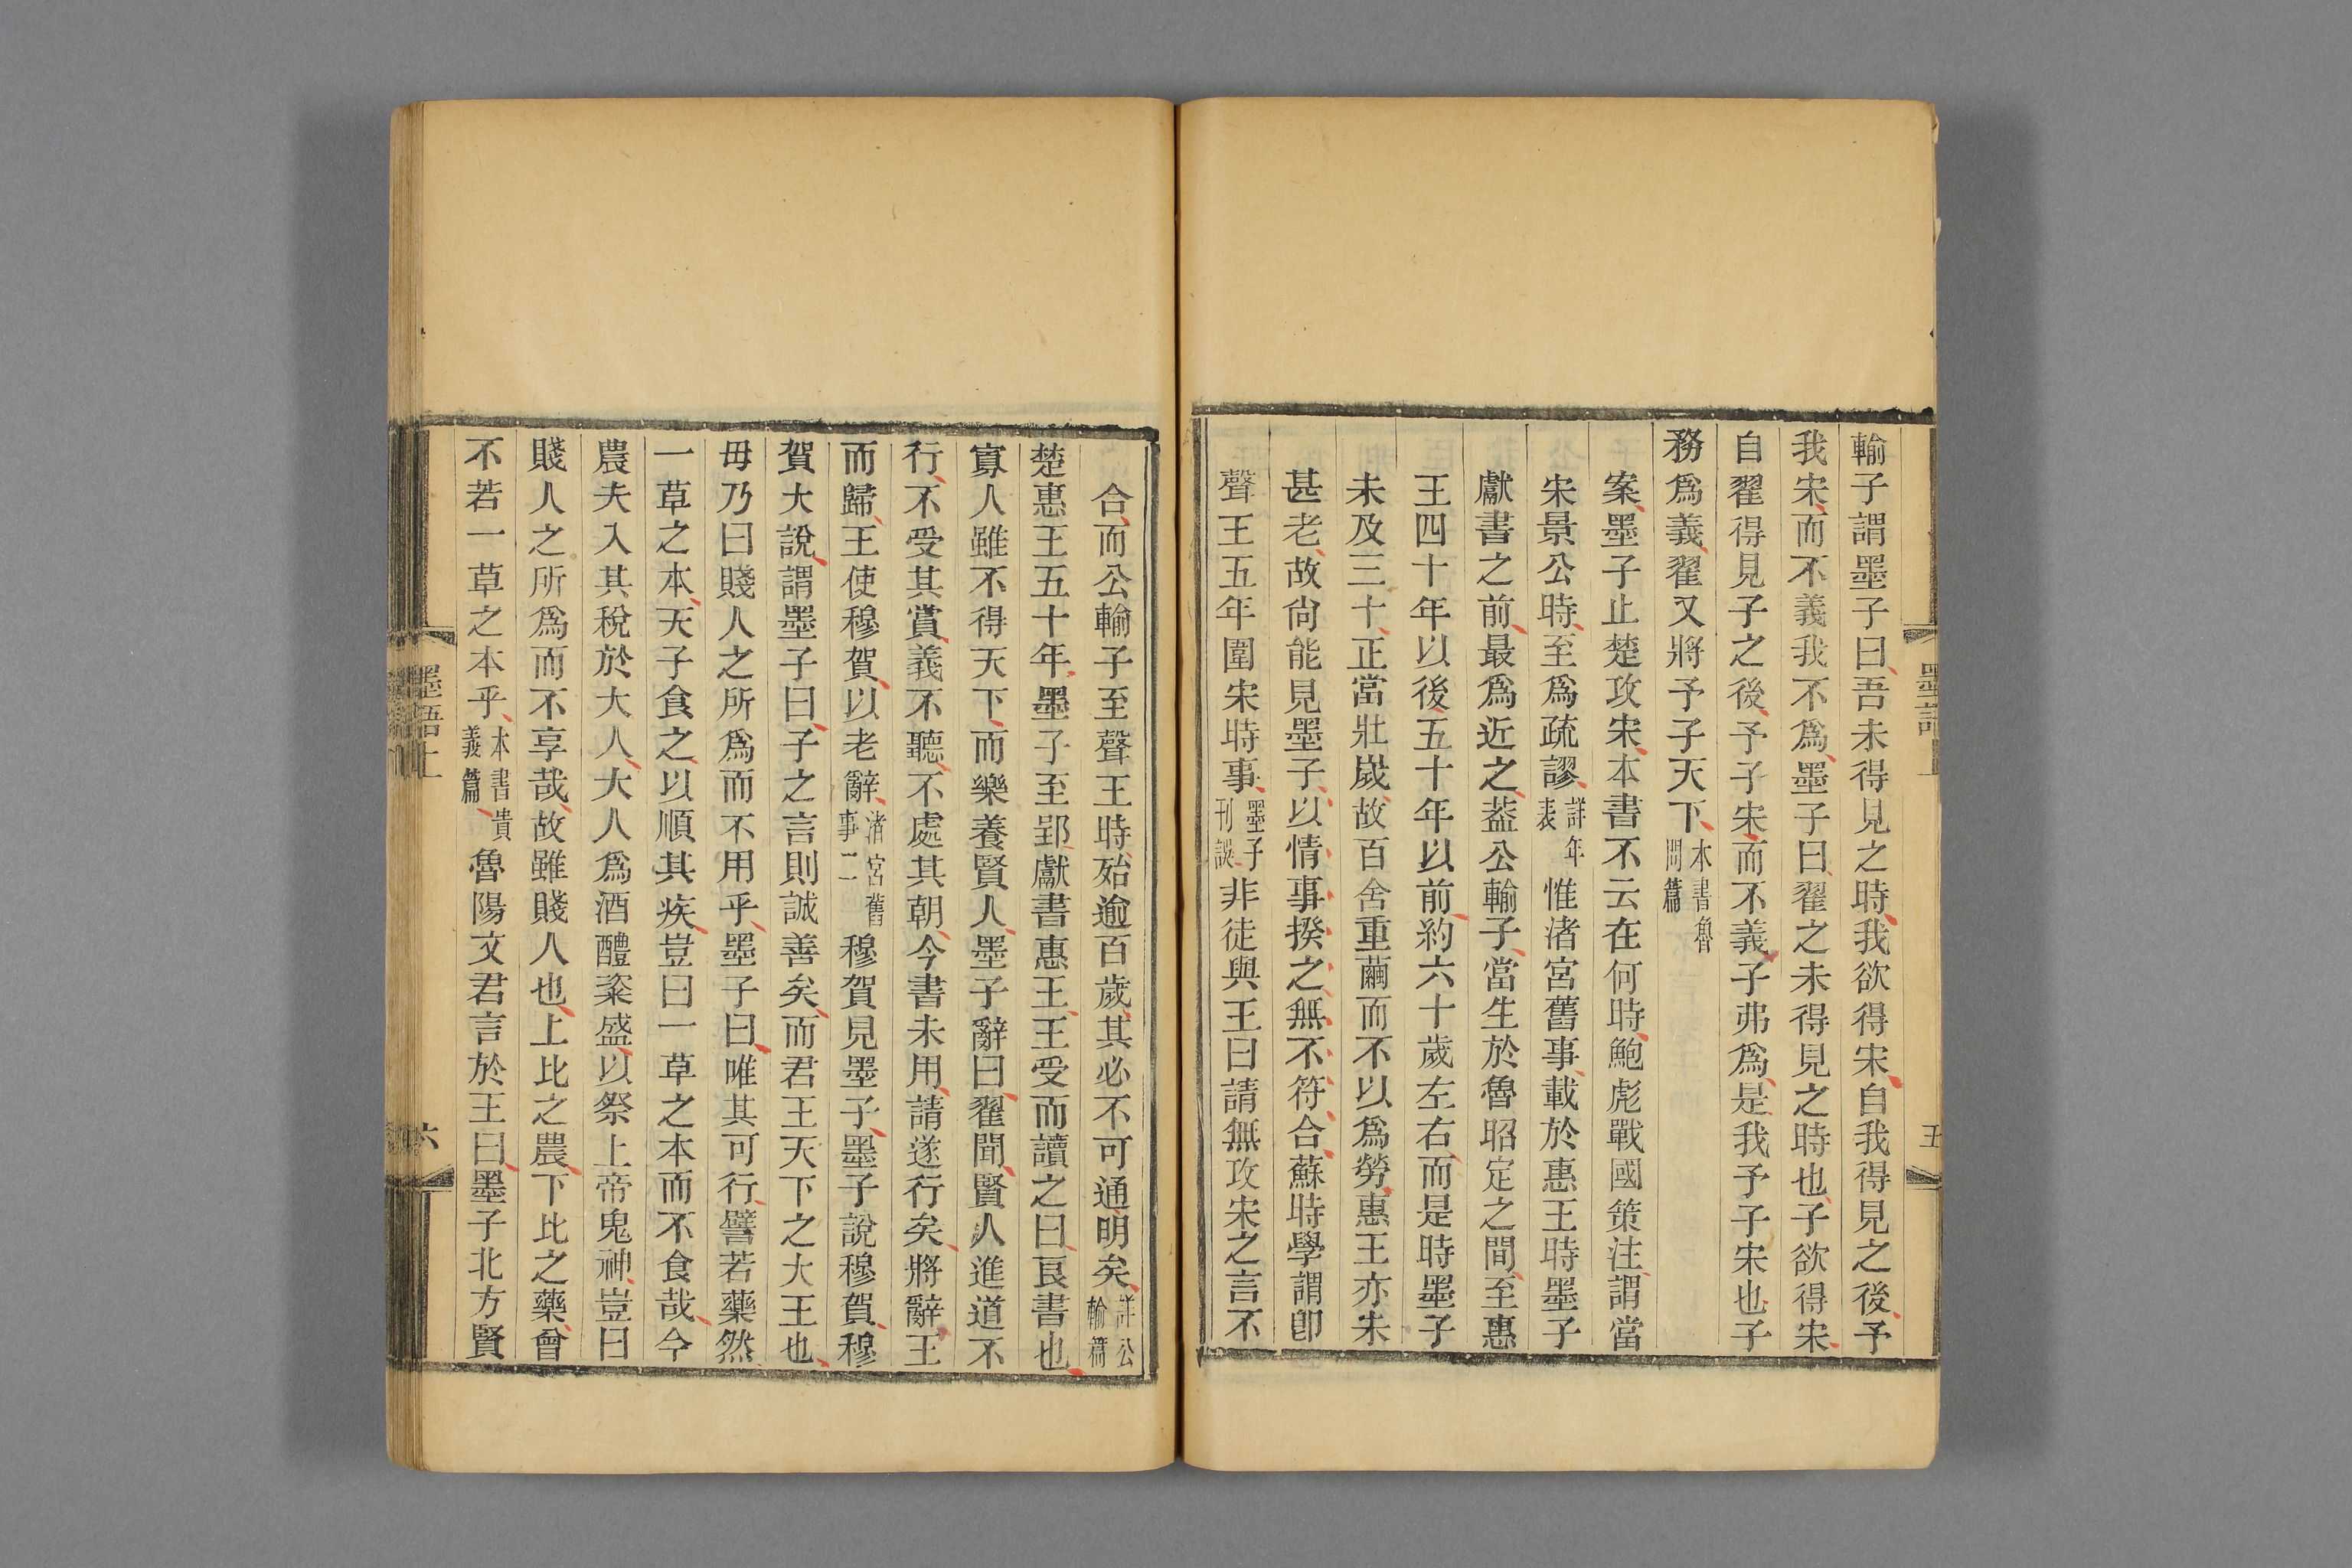 輸子謂墨子曰吾未得見之時我欲得宋自我得見之後予
我宋而不義我不爲墨子曰翟之未得見之時也子欲得宋
自翟得見子之後予子宋而不義子弗爲是我予子宋也子
務爲義翟又將予子天下本書魯問篇
案墨子止楚攻宋本書不云在何時鮑彪戰國策注謂當
宋景公時至爲疏謬詳年表惟渚宮舊事載於惠王時墨子
獻書之前最爲近之葢公輸子當生於魯昭定之間至惠
王四十年以後五十年以前約六十歲左右而是時墨子
未及三十正當壯歲故百舍重繭而不以爲勞惠王亦未
甚老故尙能見墨子以情事揆之無不符合蘇時學謂卽
聲王五年圍宋時事墨子刊誤非徒與王曰請無攻宋之言不
墨語上
五
合而公輸子至聲王時殆逾百歲其必不可通明矣詳公輸篇
楚惠王五十年墨子至郢獻書惠王王受而讀之曰良書也
寡人雖不得天下而樂養賢人墨子辭曰翟聞賢人進道不
行不受其賞義不聽不處其朝今書未用請遂行矣將辭王
而歸王使穆賀以老辭渚宮舊事二穆賀見墨子墨子說穆賀穆
賀大說謂墨子曰子之言則誠善矣而君王天下之大王也
毋乃曰賤人之所爲而不用乎墨子曰唯其可行譬若藥然
一草之本天子食之以順其疾豈曰一草之本而不食哉今
農夫入其稅於大人大人爲酒醴粢盛以祭上帝鬼神豈曰
賤人之所爲而不享哉故雖賤人也上比之農下比之藥曾
不若一草之本乎本書貴義篇魯陽文君言於王曰墨子北方賢
墨語上
六